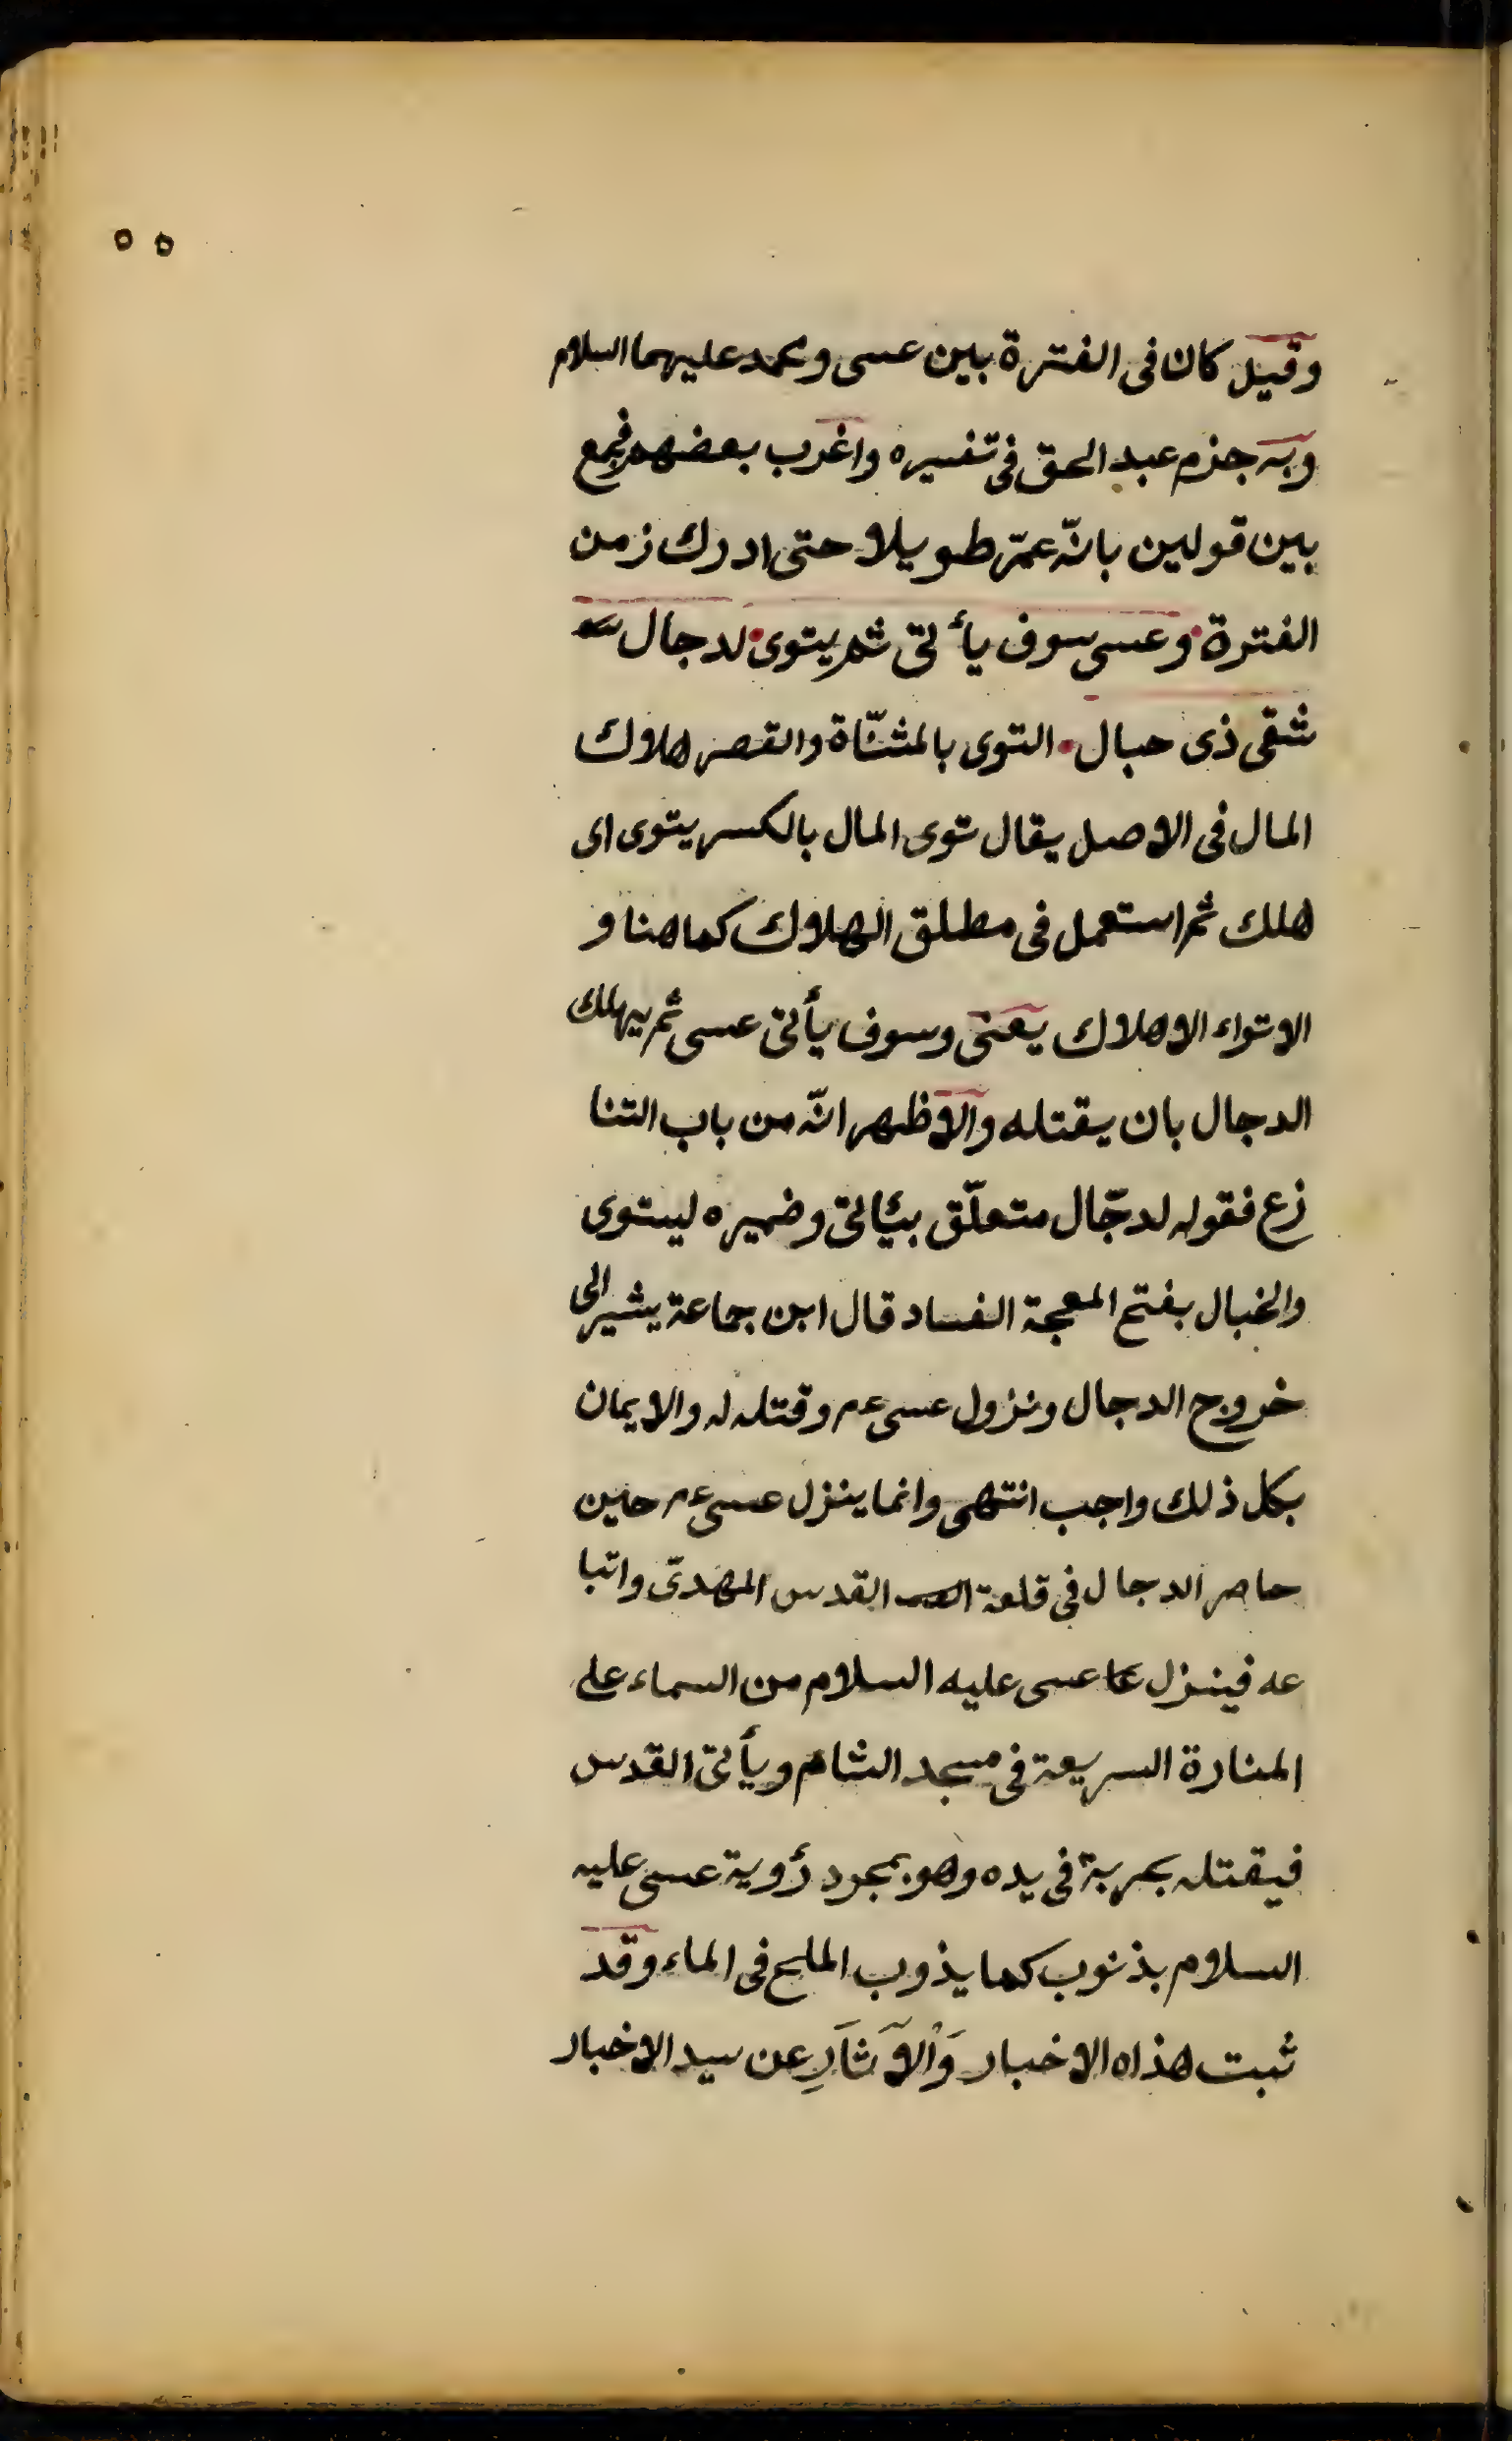 ٥٥
وقيل كان فى الفترة بين عسى ومحمد عليهما السلام
وبه جزم عبد الحق فى تفسيره واغرب بعضهم فجمع
بين قولين بانّه عمّر طويلا حتى ادرك زمن
الفترة وعسى سوف يأتى ثم يتوى لدجال
شقى ذى حبال التوى بالمثنّاة والقصر هلاك
المال فى الاصل يقال توى المال بالكسر يتوى اى
هلك ثم استعمل فى مطلق الهلاك كما هنا و
الاتواء الاهلاك يعنى وسوف يأتى عسى ثم يهلك
الدجال بان يقتله والاظهر انّه من باب التنا
زع فقوله لدجّال متعلّق بيأتى وضميره ليتوى
والخبال بفتح المعجمة الفساد قال ابن جماعة يشير الى
خروج الدجال ونزول عسى عم وقتله له والايمان
بكل ذلك واجب انتهى وانما ينزل عسى عم حين
حاصر الدجال فى قلعة القدس المهدىّ واتبا
عه فينزل عسى عليه السلام من السماء على
المنارة السريعة فى مسجد الشام ويأتى القدس
فيقتله بحربة فى يده وهو بمجرد رؤية عسى عليه
السلام بذنوب كما يذوب الملح فى الماء وقد
ثبت هذاه الاخبار وَالْآثَارِ عن سيد الاخبار